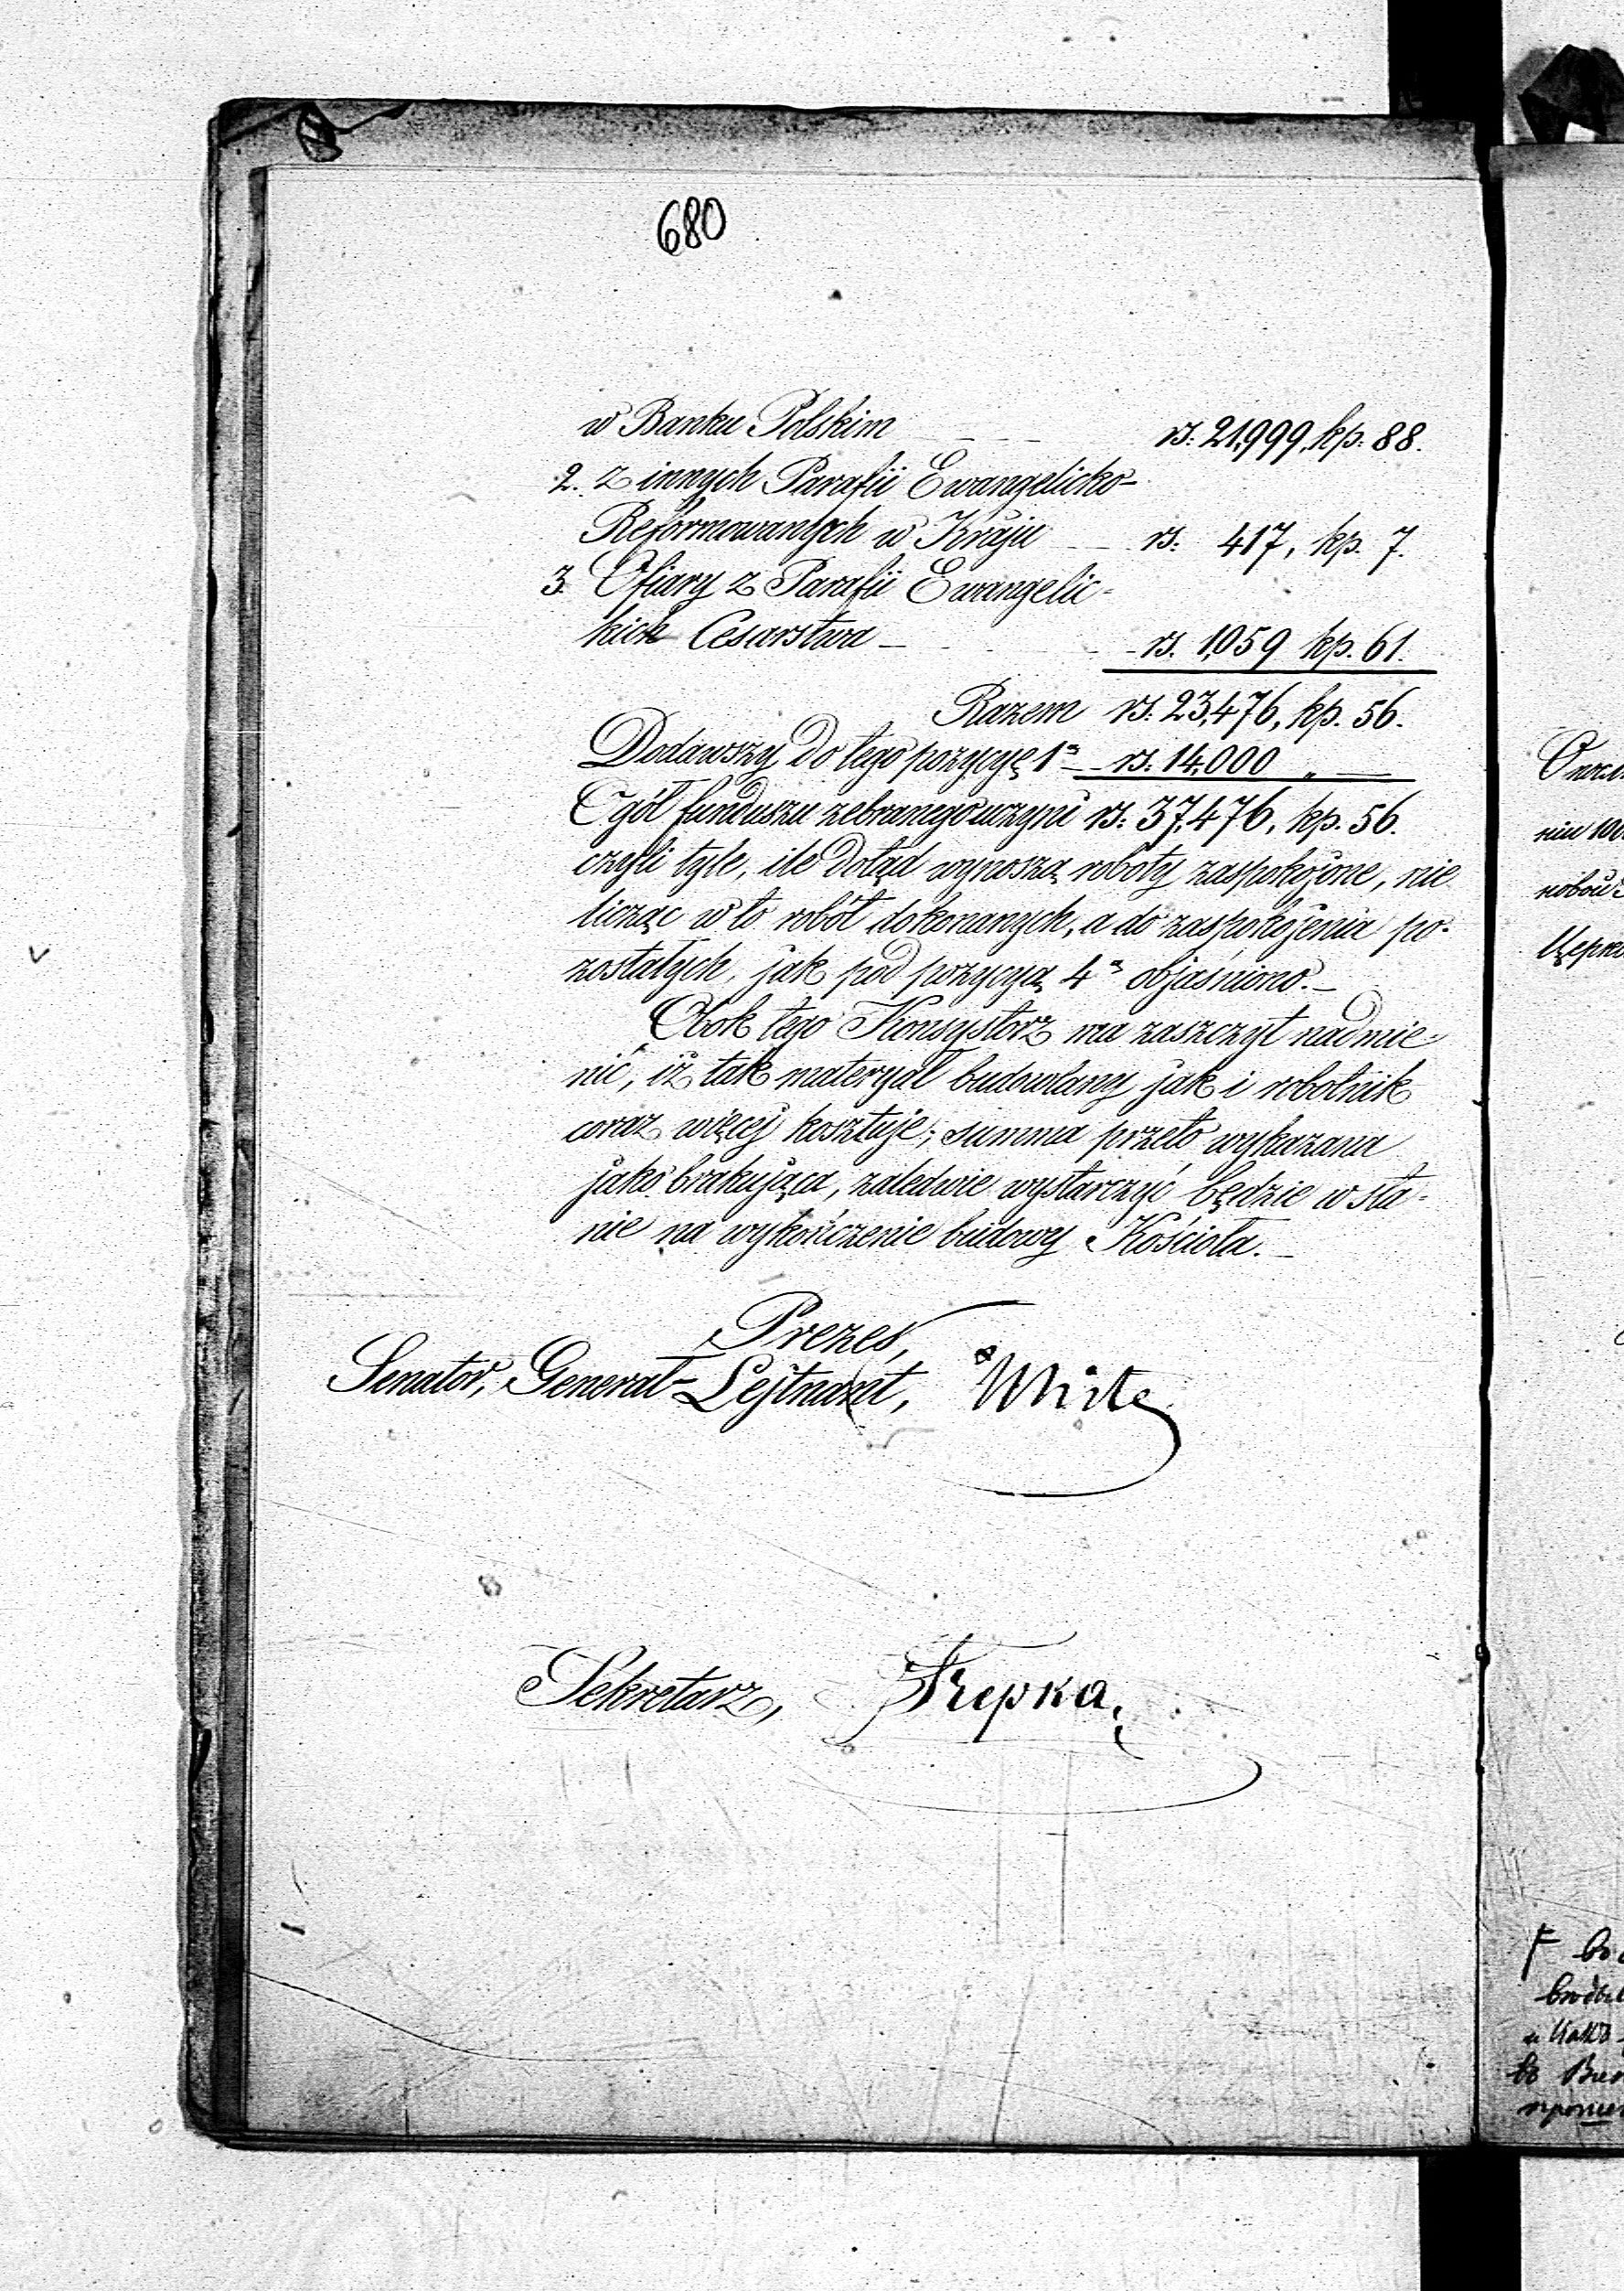 680
w Banku Polskim — — — rs: 21,999, kp: 88.
2. z innych Parafii Ewangelicko-
Reformowanych w Kraju — rs: 417, kp. 7.
3. Ofiary z Parafii Ewangelic-
kich Cesarstwa — — rs. 1,059 kp. 61.
Razem rs: 23,476, kp. 56.
Dodawszy do tego pozycyę 1ą — rs: 14,000 „ —
Ogół funduszu zebranego uczyni rs: 37,476, kp. 56.
czyli tyle, ile dotąd wynoszą roboty zaspokojone, nie
licząc w to robót dokonanych, a do zaspokojenia po-
zostałych, jak pod pozycyą 4ą objaśniono. —
Obok tego Konsystorz ma zaszczyt nadmie-
nić, iż tak materyał budowlany jak i robotnik
coraz więcej kosztuje; summa przeto wykazana
jako brakująca, zaledwie wystarczyć będzie w sta-
nie na wykończenie budowy Kościoła. —
Prezes,
Senator, Generał-Lejtnant,
Sekretarz,